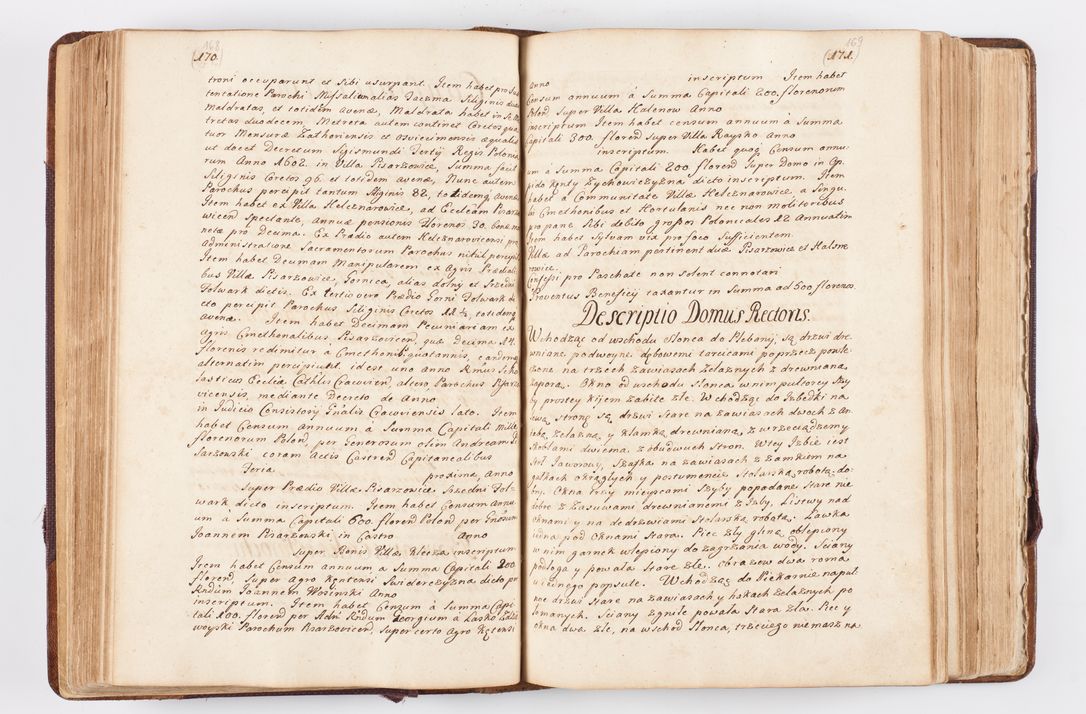 168
170.
troni occuparunt et sibi usurpant. Item habet pro sus
tentatione Parochi Missalia alias Taczma Siliginis duas
maldratas et totidem avenæ, Maldrata habet in se Me
tretas duodecem, Metreta autem continet Coretos qua
tuor Mensuræ Zathoriensis et Osviecimensis æquales
ut docet Decretum Sigismundi Tertij Regis Polonia
rum Anno 1602. in Villa Pisarzowice, Summa facit
Siliginis Coretos 96. et totidem avenæ, Nunc autem
Parochus percipit tantum siliginis 82, totidemq avenæ
Item habet ex Villa Helcznarowice, ad Ecclãm Pisarzo
wicen̄ Spectante, Annuæ pensionis florenos 30. bonæ mo
netæ pro Decima. Ex Prædio autem Helcznarovicensi pro
Administratione Sacramentorum Parochus nihil percipit
Item habet Decimam Manipularem ex Agris Prædiali
bus Villæ Pisarzowice, Gornica, alias dolny et Srzedni
Folwark dictis. Ex tertio vero Prædio Gorni Folwark di
cto percipit Parochus Siliginis Coretos 12½, totidemq
avenæ. Item habet Decimam Pecuniariam ex
agris Cmethonalibus Pisarzovicen̄, quæ Decima 14.
florenis redimitur â Cmethonibus quotannis, eandemq
alternatim percipiunt idest uno anno Rmus Scho
lasticus Ecclia Cathlis Cracovien̄, altero Parochus Pisarzo
vicensis, mediante Decreto de Anno
in Judicio Consistorij Gñalis Cracoviensis lato. Item
habet Censum annuum â Summa Capitali mille
florenorum Polon̄, per Generosum olim Andream P.
Saczowski coram Actis Castren̄ Capitanealibus
Feria proxima, Anno
Super Prædio Villæ Pisarzowice Srzedni Fol
wark dicto inscriptum. Item habet Censum Annu
um â Summa Capitali 600. floren̄ Polon̄ per Gnōsum
Joannem Pisarzowski in Castro Anno
Super Bonis Villæ Klecza inscriptum
Item habet Censum annuum, a Summa Capitali 200
floren̄, Super Agro Kentensi Swiderczyzna dicto per
Rndum Joannem Wosinski Anno
inscriptum. Item habet Censum â Summa Capi
tali 100. floren̄ per Adm̄ Rndum Georgium â Łasko Zadzi
woyski Parochum Pisarzovicen̄, Super certo agro Kętensi
169
171.
Anno inscriptum Item habet
Censum annuum â Summa Capitali 200. florenorum
Polon̄ Super Villa Halcnow Anno
inscriptum Item habet censum annuum â Summa
Capitali 300. floren̄ Super Villa Raysko Anno
inscriptum. Habet quoq Censum annu
um â Summa Capitali 200 floren̄ Super Domo in Op
pido Kenty Zychowiczyzna dicto inscriptum. Item
habet â Communitate Villæ Helcznarowice â Singu
lis Cmethonibus et Hortulanis nec non molitoribus
pro pane Sibi debito grossos Polonicales 12 Annuatim
Item habet Sylvam vix pro foco Sufficientem
Villæ ad Parochiam pertinent duæ Pisarzowice et Halcne
rowice.
Confessi pro Paschate non solent connotari
Proventus Beneficij taxantur in Summa ad 600 florenos.
Descriptio Domus Rectoris.
Wchodząc od wschodu Słonca do Plebanij, są drzwi dre
wniane podwoyne dębowemi tarcicami poprzecz powle
czone na trzech zawiasach zelaznych z drewnianą
zaporą. Okno od wschodu Słonca w nim pultorey szy
by prostey kijem zabite złe. Wchodząc do Izbedki na
lewą stronę są drzwi stare na zawiasach dwoch z An
tabą zelazną y klamką drewnianą, z wrzeciądzemy
Skoblami dwiema z obudwuch stron. W tey Izbie iest
Stoł Jaworowy, Szafka na zawiasach z zamkiem na
gałkach okrągłych y postumencie Stolarską robotą; do
bry. Okna trzy mieyscami szyby popadane Stare nie
dobre z zasuwami drewnianemi z Izby, Listwy nad
oknami y na dedrzwiami Stolarską robotą. Ławka
iedna pod Oknami Stara. Piec zły gliną oblepiony
w nim garnek wlepiony do zagrzania wody. Sciany
podłoga y powała Stare złe. Obrazow dwa rama
u iednego popsute. Wchodząc do Piekarnie napul
nue drzwi stare na zawiasach y hakach zelaznych po
łomanych. Sciany zgniłe powała Stara zła. Piec y
okna dwa złe, na wschod Słonca, trzeciego niemasz na